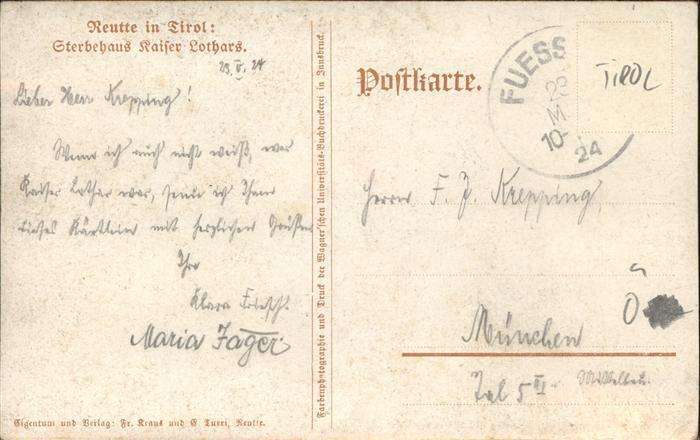 Reutte in Tirol:
Sterbehaus Kaiser Lothars.
23.V.24
Lieber Herr Krepping!
Wenn ich auch nicht weiß, wer
Kaiser Lothar war, sende ich Ihnen
dieses Kärtlein mit herzlichen Grüßen
Ihre
Klara
Maria Jager
Eigentum und Verlag: Fr. Kraus und E Turri, Reutte.
Farbenphotographie und Druck der Wagner'schen Universitäts-Buchdruckerei in Innsbruck.
Postkarte.
FUESS
24
TIROL
Herrn F. J. Krepping
München
Tal 5 III